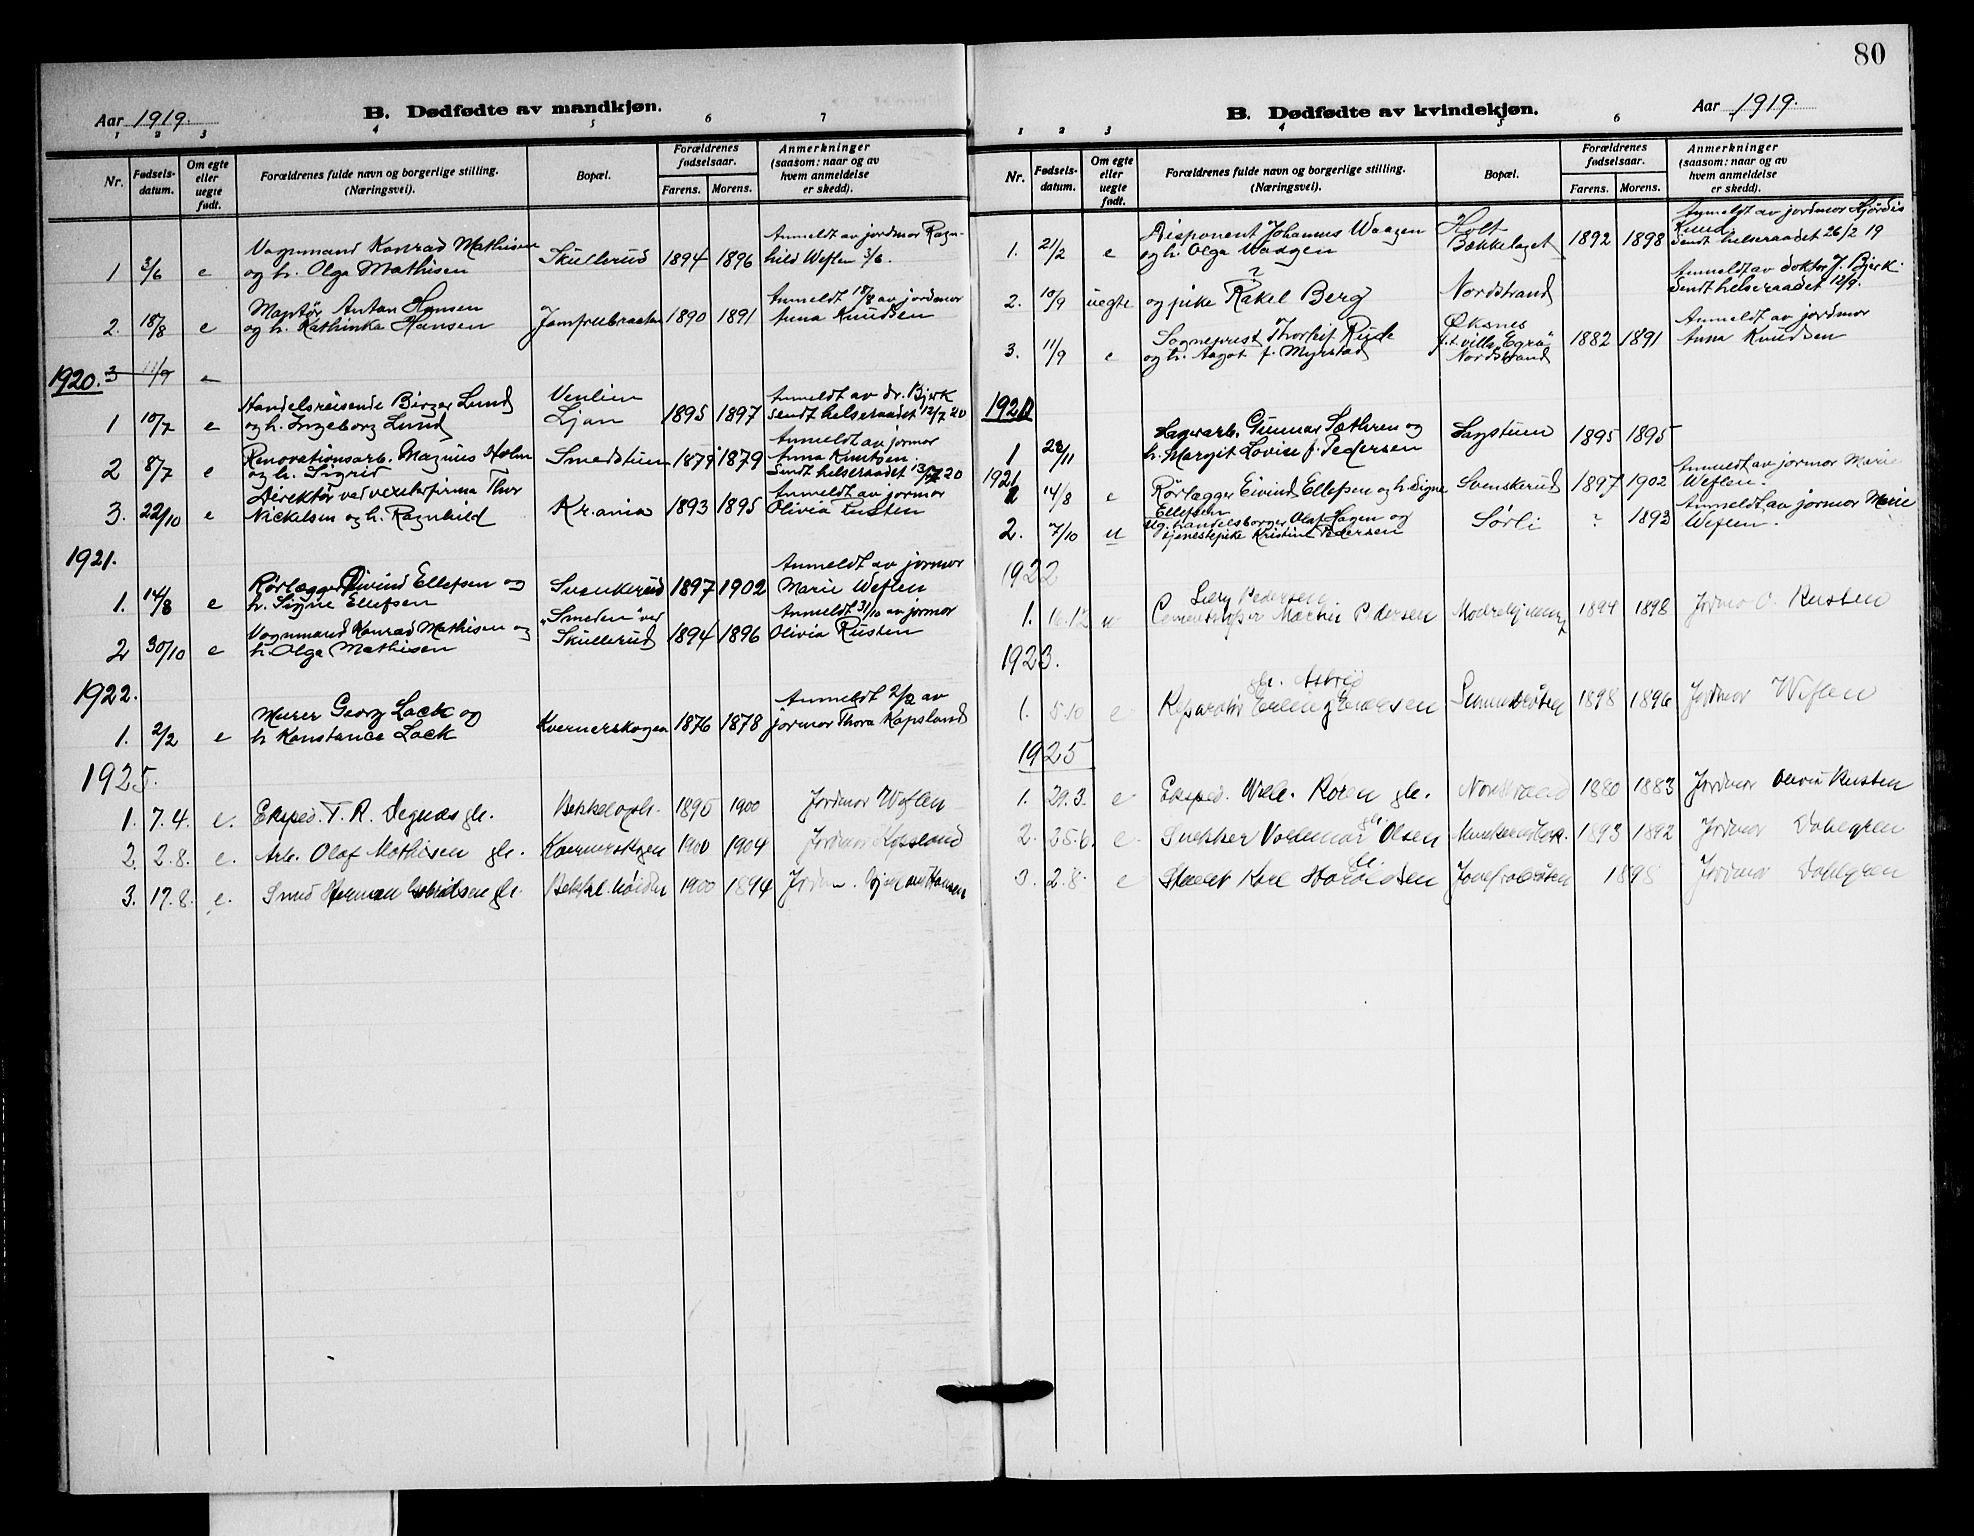 80
Aar 1919.
B. Dødfødte av mandkjøn.
1 2 3 4 5 6 7
Nr.
Fødsels-
datum.
Om egte
eller
uegte
født.
Forældrenes fulde navn og borgerlige stilling.
(Næringsvei).
Bopæl.
Forældrenes
fødselsaar.
Farens. Morens.
Anmerkninger
(saasom: naar og av
hvem anmeldelse
er skedd).
Vognmand Konrad Mathisen Anmeldt av jordmor Ragn-
1 3/6 e og h. Olga Mathisen Skullerud 1894 1896 hild Weflen 3/6.
Montør Anton Hansen Anmeldt 18/8 av jordmor
2. 18/8 e og h. Kathinka Hansen Jomfrubraaten 1890 1891 Anna Knudsen
1920. 3 11/9 e
Handelsreisende Birger Lund Venlien Anmeldt av dr. Bjerk
1 10/7 e og h. Ingeborg Lund Ljan 1895 1897 Sendt helseraadet 12/7 20
Renovationsarb. Magnus Holm Anmeldt av jormor
2 8/7 e og h. Sigrid Smedstuen 1879 1879 Anna Knutsen.
Sendt helseraadet 13/7 20
Direktør ved veritasfirma Thor Anmeldt av jormor
3. 22/10 e Nickelsen og h. Ragnhild Kr.ania 1893 1895 Olivia Rusten
1921.
Rørlægger Eivind Ellefsen og Anmeldt av jormor
1. 14/8 e h. Signe Ellefsen Svenskerud 1897 1902 Marie Weflen
Vognmand Konrad Mathisen og "Smeden" ved Anmeldt 31/10 av jormor
2 30/10 e h. Olga Mathisen Skullerud 1894 1896 Olivia Rusten
1922.
Murer Georg Lack og Anmeldt 2/2 av
1. 2/2 e h Konstance Lack Kvernerskogen 1876 1878 jormor Thora Kopsland
1925.
1. 7.4. e. Eksped. T. R. Degnæs 1895 1900 Jordmor Weflen
2. 2.8. e. Arb. Olaf Mathisen Kværnerskogen 1900 1904 Jordmor Kopsland
3. 17.8. e. Smed Herman 1900 1894 Hansen
B. Dødfødte av kvindekjøn.
Aar 1919.
1 2 3 4 5 6
Nr.
Fødsels-
datum.
Om egte
eller
uegte
født.
Forældrenes fulde navn og borgerlige stilling.
(Næringsvei).
Bopæl.
Forældrenes
fødselsaar.
Farens. Morens.
Anmerkninger
(saasom: naar og av
hvem anmeldelse
er skedd).
Disponent Johannes Waagen Holt Anmeldt av jordmor Hjørdis
1. 21/2 e og h. Olga Waagen Bækkelaget 1892 1898 Ruud.
Sendt helseraadet 26/2 19
? Anmeldt av doktor J. Bjerk.
2. 10/9 uegte og pike Rakel Berg Nordstrand Sendt helseraadet 12/9.
Sogneprest Thorleif Rude Øksnes Anmeldt av jordmor
3. 11/9 e og h. Aagot f. Myrstad f.t. villa "Egra" 1882 1891 Anna Knudsen
Nordstrand
1920
Lagerarb. Gunnar Sæthren og
1 23/11 h. Margit Lovise f. Pedersen Lagstuen 1895 1895
1921 Anmeldt av jormor Marie
1 14/8 e Rørlægger Eivind Ellefsen og h. Signe Svenskerud 1897 1902 Weflen.
Ellefsen
Ug. handelsborger Olaf Hagen og Anmeldt av jormor Marie
2. 7/10 u tjenestepike Kristine Pedersen Sørli ? 1893 Weflen.
1922
Pedersen
1. 16.12 u Martin Pedersen 1894 1898 Jordmor O. Rusten
1923.
gh. Astrid
1. 5.10 e Reparatør Erling 1898 1896 Jordmor Weflen
1925
1. 29.3. e Eksped. Nordstrand 1880 1883 Jordmor Olivia Rusten
2. 25.6. e Snekker Valdemar Olsen 1893 1892 Jordmor Dahlgren
3. 2.8. e Karl Haraldsen Jomfrubråten 1898 Jordmor Dahlgren